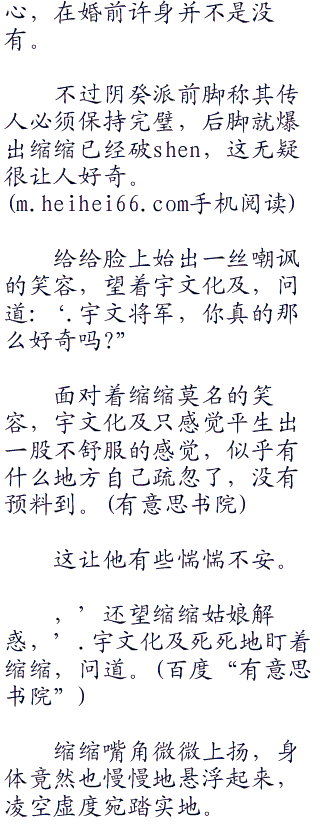 心，在婚前许身并不是没
有。
不过阴癸派前脚称其传
人必须保持完璧，后脚就爆
出绾绾已经破shen，这无疑
很让人好奇。
(m.heihei66.com手机阅读)
给给脸上始出一丝嘲讽
的笑容，望着宇文化及，问
道:‘.宇文将军，你真的那
么好奇吗?”
面对着绾绾莫名的笑
容，宇文化及只感觉平生出
一股不舒服的感觉，似乎有
什么地方自己疏忽了，没有
预料到。(有意思书院)
这让他有些惴惴不安。
，’还望绾绾姑娘解
惑，’.宇文化及死死地盯着
绾绾，问道。(百度“有意思
书院”)
绾绾嘴角微微上扬，身
体竟然也慢慢地悬浮起来，
凌空虚度宛踏实地。